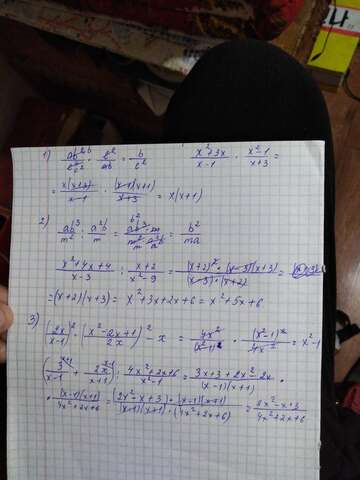 1) ab^2b / c^2 · c^2 / ab = b / c^2    x^2+3x / x-1 · x^2-1 / x+3 =
= x(x+3) / x-1 · (x-1)(x+1) / x+3 = x(x+1)
2) ab^3 / m^2 : a^2b / m = ab^3 · m / m^2 · a^2b = b^2 / ma
x^2+4x+4 / x-3 : x+2 / x^2-9 = (x+2)^2 · (x-3)(x+3) / (x-3) · (x+2) =
=(x+2)(x+3) = x^2+3x+2x+6 = x^2+5x+6
3) (2x / x-1)^2 · (x^2-2x+1 / 2x)^2 - x = 4x^2 / (x^2-1)^2 · (x^2-1)^2 / 4x^2 = x^2-1
(3 / x-1 + 2x / x+1) : 4x^2+2x+6 / x^2-1 = 3x+3+2x^2-2x / (x-1)(x+1) ·
· (x-1)(x+1) / 4x^2+2x+6 = (2x^2-x+3) · (x-1)(x+1) / (x-1)(x+1) · (4x^2+2x+6) = 2x^2-x+3 / 4x^2+2x+6